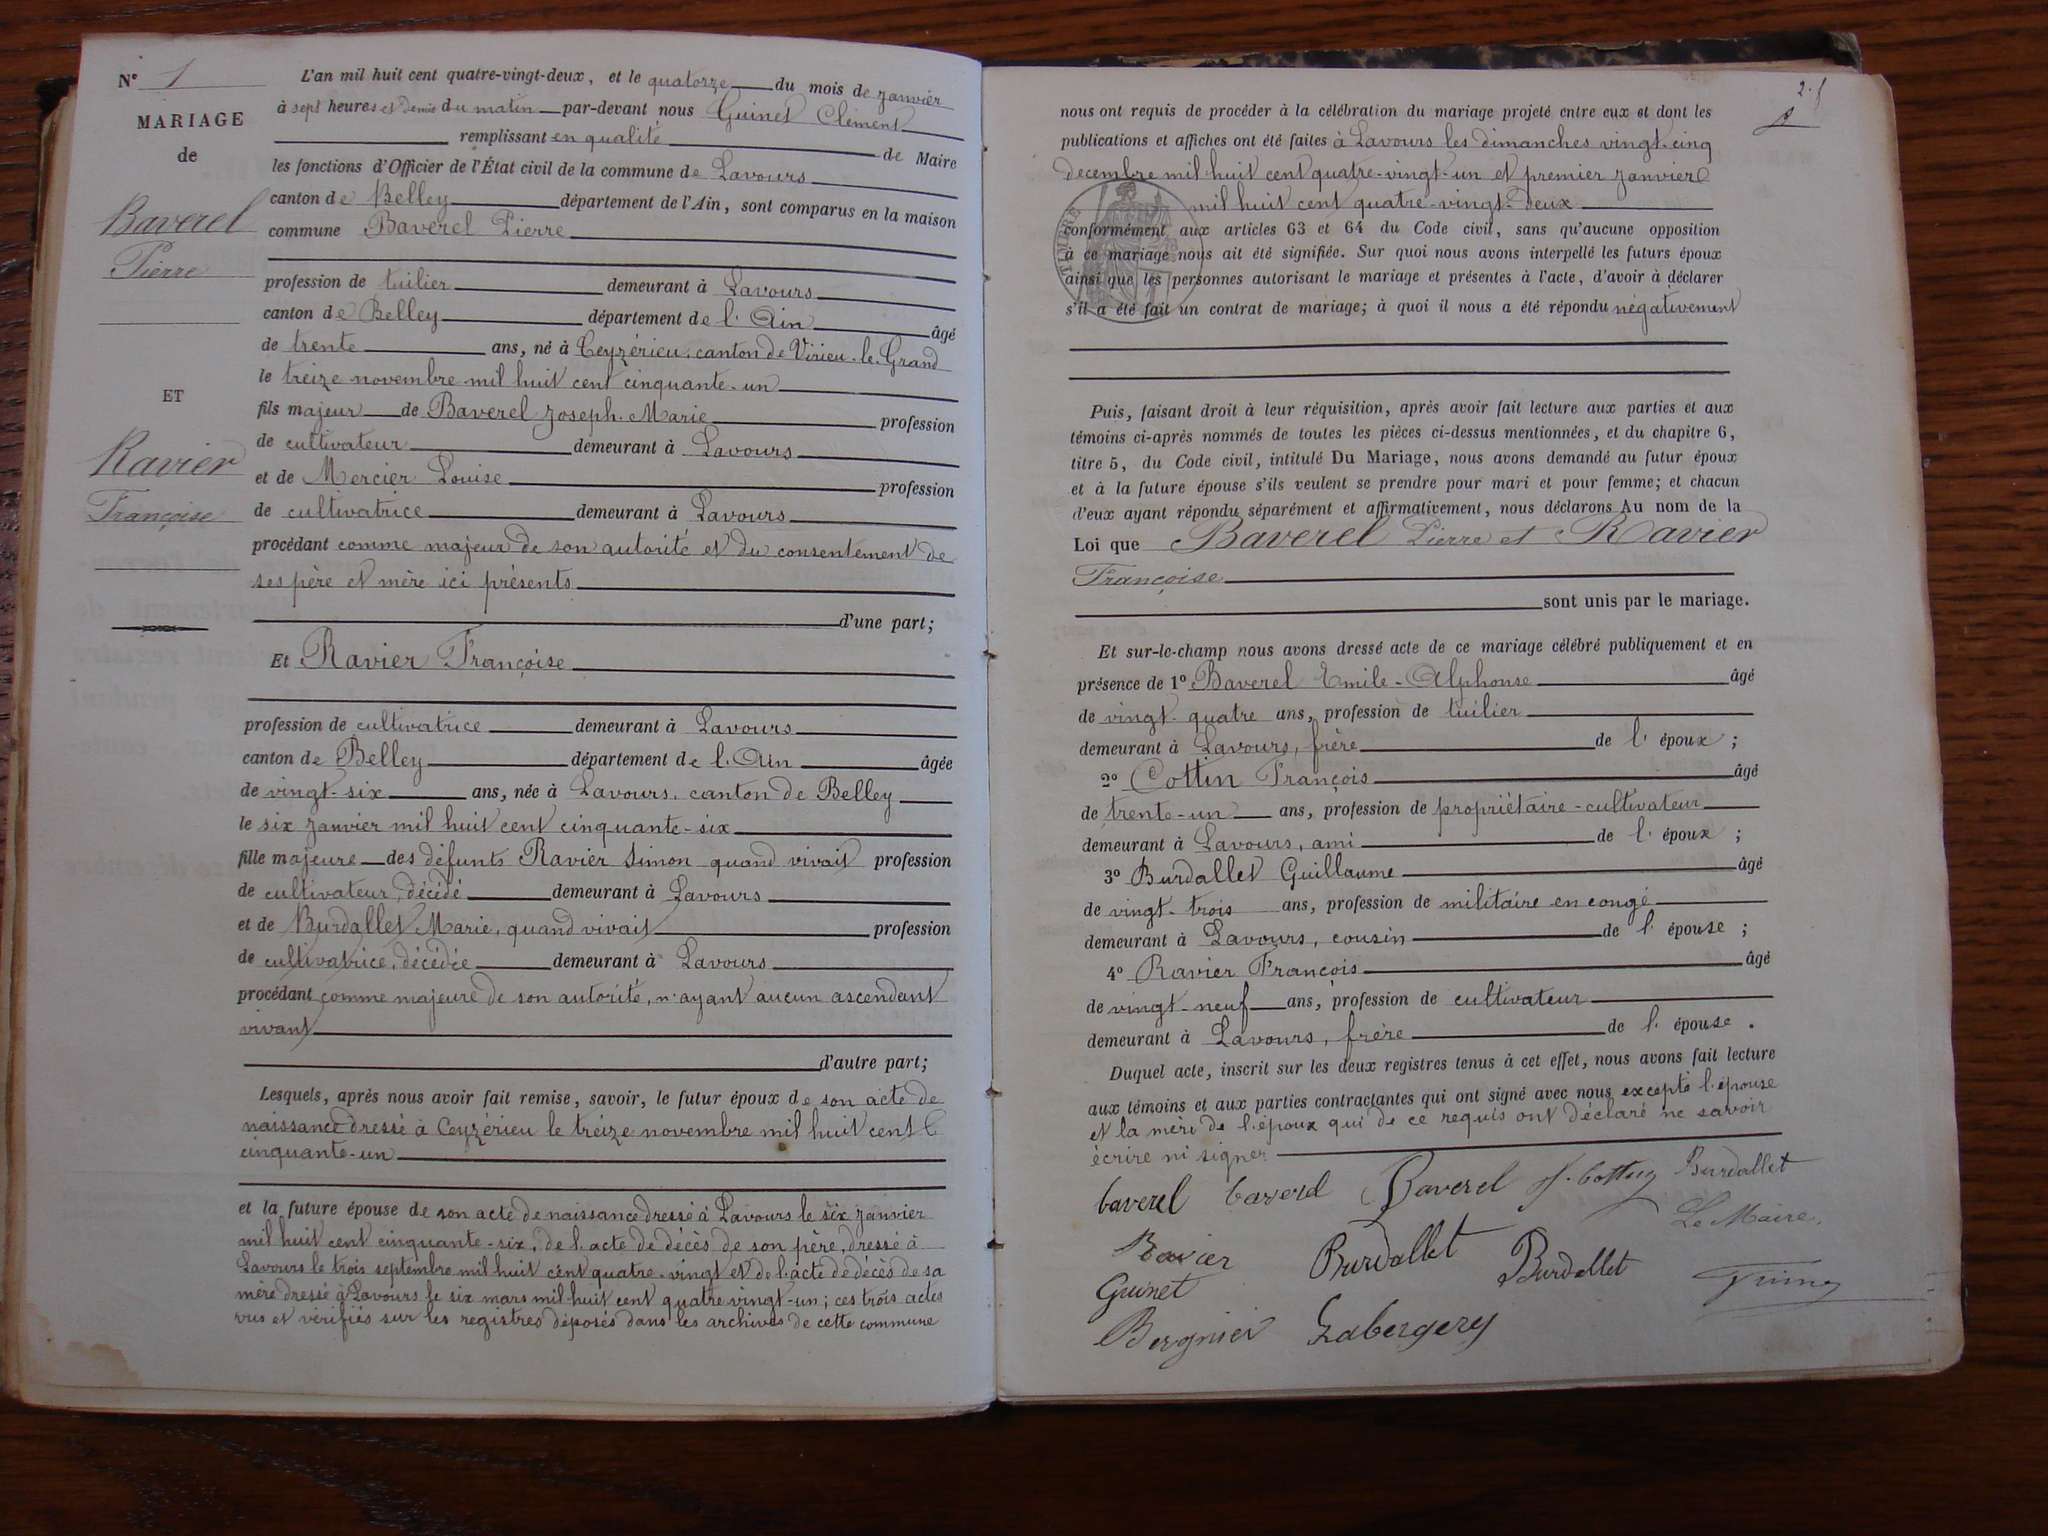 N° 1
MARIAGE
de
Baverel
Pierre
ET
Ravier
Françoise
L'an mil huit cent quatre-vingt-deux, et le quatorze du mois de janvier
à sept heures et demie du matin par-devant nous Guinet Clément
remplissant en qualité de Maire
les fonctions d'Officier de l'État civil de la commune de Lavours
canton de Belley département de l'Ain, sont comparus en la maison
commune Baverel Pierre
profession de tuilier demeurant à Lavours
canton de Belley département de l'Ain âgé
de trente ans, né à Ceyzérieu, canton de Virieu-le-Grand
le treize novembre mil huit cent cinquante-un
fils majeur de Baverel Joseph-Marie profession
de cultivateur demeurant à Lavours
et de Mercier Louise profession
de cultivatrice demeurant à Lavours
procédant comme majeur de son autorité et du consentement de
ses père et mère ici présents
d'une part;
Et Ravier Françoise
profession de cultivatrice demeurant à Lavours
canton de Belley département de l'Ain âgée
de vingt-six ans, née à Lavours, canton de Belley
le six janvier mil huit cent cinquante-six
fille majeure des défunts Ravier Simon quand vivait profession
de cultivateur, décédé demeurant à Lavours
et de Burdallet Marie, quand vivait profession
de cultivatrice, décédée demeurant à Lavours
procédant comme majeure de son autorité, n'ayant aucun ascendant
vivant
d'autre part;
Lesquels, après nous avoir fait remise, savoir, le futur époux de son acte de
naissance dressé à Ceyzérieu le treize novembre mil huit cent
cinquante-un
et la future épouse de son acte de naissance dressé à Lavours le six janvier
mil huit cent cinquante-six, de l'acte de décès de son père, dressé à
Lavours le trois septembre mil huit cent quatre-vingt et de l'acte de décès de sa
mère dressé à Lavours le six mars mil huit cent quatre vingt-un; ces trois actes
vus et vérifiés sur les registres déposés dans les archives de cette commune
nous ont requis de procéder à la célébration du mariage projeté entre eux et dont les
publications et affiches ont été faites à Lavours les dimanches vingt-cinq
decembre mil huit cent quatre-vingt-un et premier janvier
mil huit cent quatre-vingt-deux
TIMBRE
conformément aux articles 63 et 64 du Code civil, sans qu'aucune opposition
à ce mariage nous ait été signifiée. Sur quoi nous avons interpellé les futurs époux
ainsi que les personnes autorisant le mariage et présentes à l'acte, d'avoir à déclarer
s'il a été fait un contrat de mariage; à quoi il nous a été répondu négativement
Puis, faisant droit à leur réquisition, après avoir fait lecture aux parties et aux
témoins ci-après nommés de toutes les pièces ci-dessus mentionnées, et du chapitre 6,
titre 5, du Code civil, intitulé Du Mariage, nous avons demandé au futur époux
et à la future épouse s'ils veulent se prendre pour mari et pour femme; et chacun
d'eux ayant répondu séparément et affirmativement, nous déclarons Au nom de la
Loi que Baverel Pierre et Ravier
Françoise
sont unis par le mariage.
Et sur-le-champ nous avons dressé acte de ce mariage célébré publiquement et en
présence de 1° Baverel Emile-Alphonse âgé
de vingt-quatre ans, profession de tuilier
demeurant à Lavours, frère de l'époux;
2° Cottin François âgé
de trente-un ans, profession de propriétaire-cultivateur
demeurant à Lavours, ami de l'époux;
3° Burdallet Guillaume âgé
de vingt-trois ans, profession de militaire en congé
demeurant à Lavours, cousin de l'épouse;
4° Ravier François âgé
de vingt-neuf ans, profession de cultivateur
demeurant à Lavours, frère de l'épouse.
Duquel acte, inscrit sur les deux registres tenus à cet effet, nous avons fait lecture
aux témoins et aux parties contractantes qui ont signé avec nous excepté l'épouse
et la mère de l'époux qui de ce requis ont déclaré ne savoir
écrire ni signer
baverel baverel Baverel f. Cottin Burdallet
Le Maire,
Ravier Burdallet Burdallet
Guinet